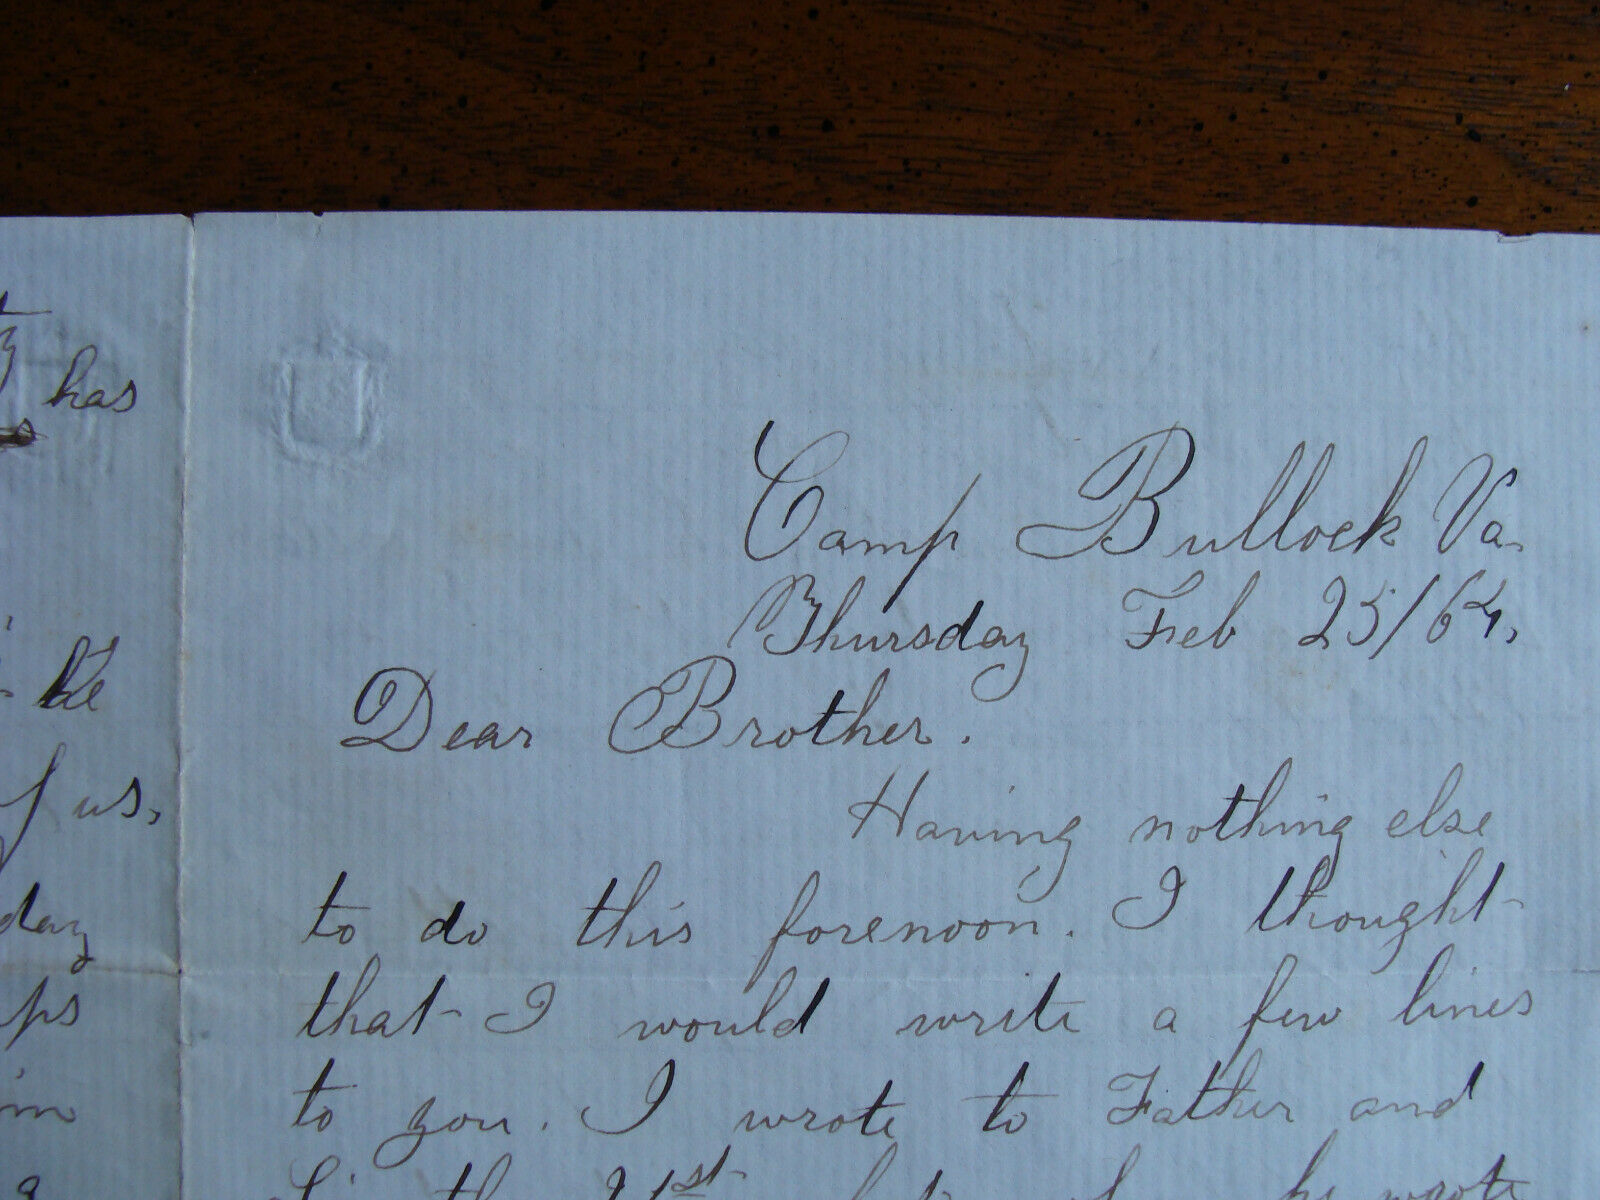 has
the
of us,
day
Camp Bullock Va.
Thursday Feb 25/64,
Dear Brother.
Having nothing else
to do this forenoon. I thought
that I would write a few lines
to you. I wrote to Father and
the 21st he wrote